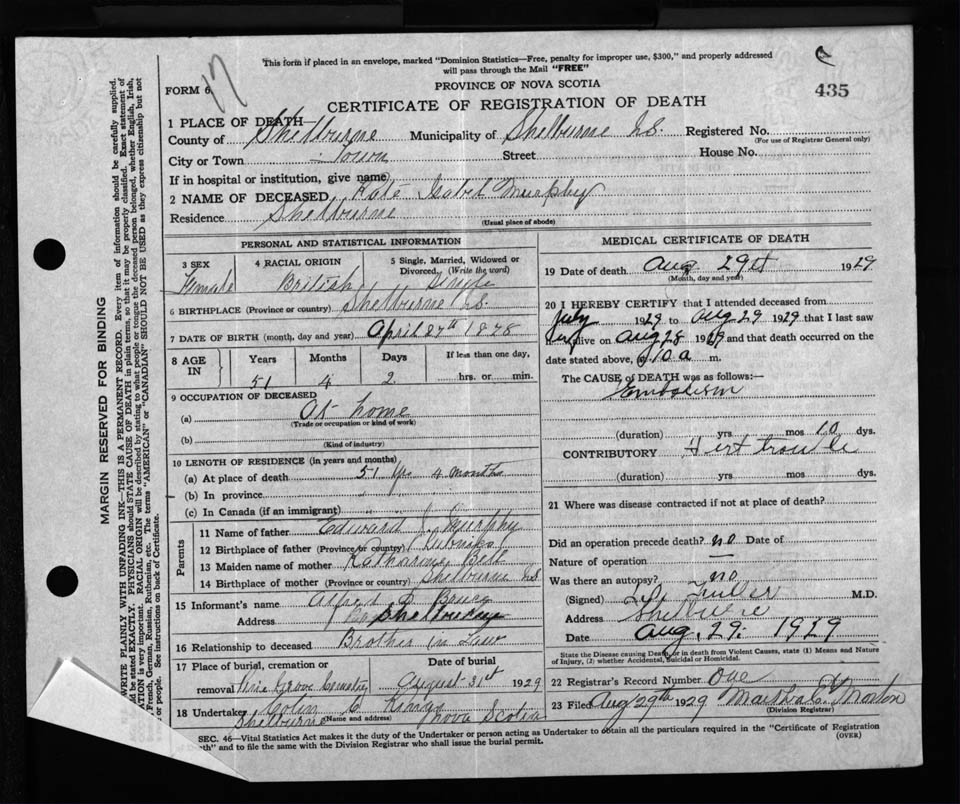 17
This form if placed in an envelope, marked "Dominion Statistics—Free, penalty for improper use, $300," and properly addressed
will pass through the Mail "FREE"
FORM 6
PROVINCE OF NOVA SCOTIA
435
CERTIFICATE OF REGISTRATION OF DEATH
1 PLACE OF DEATH
County of Shelburne Municipality of Shelburne N.S. Registered No.
(For use of Registrar General only)
City or Town Town Street House No.
If in hospital or institution, give name)
2 NAME OF DECEASED Kate Isabel Murphy
Residence Shelburne
(Usual place of abode)
PERSONAL AND STATISTICAL INFORMATION
3 SEX 4 RACIAL ORIGIN 5 Single, Married, Widowed or
Divorced. (Write the word)
Female British Single
6 BIRTHPLACE (Province or country) Shelburne N.S.
7 DATE OF BIRTH (month, day and year) April 27th 1878
8 AGE IN Years Months Days If less than one day,
51 4 2 hrs. or min.
9 OCCUPATION OF DECEASED
(a) At home
(Trade or occupation or kind of work)
(b)
(Kind of industry)
10 LENGTH OF RESIDENCE (in years and months)
(a) At place of death 51 yrs 4 months
(b) In province
(c) In Canada (if an immigrant)
Parents
11 Name of father Edward J. Murphy
12 Birthplace of father (Province or country)
13 Maiden name of mother Katharine Bell
14 Birthplace of mother (Province or country) Shelburne NS
15 Informant's name Alfred D. Bruce
Address Shelburne
16 Relationship to deceased Brother in Law
17 Place of burial, cremation or Date of burial
removal Pine Grove Cemetery August 31st 1929
18 Undertaker Colin C.
Shelburne (Name and address) Nova Scotia
MEDICAL CERTIFICATE OF DEATH
19 Date of death Aug 29th 1929
(Month, day and year)
20 I HEREBY CERTIFY that I attended deceased from
July 1929 to Aug 29 1929 that I last saw
her alive on Aug 28 1929 and that death occurred on the
date stated above, @ 10 a m.
The CAUSE of DEATH was as follows:—
Embolism
(duration) yrs mos 10 dys.
CONTRIBUTORY Hert trouble
(duration) yrs. mos. dys.
21 Where was disease contracted if not at place of death?
Did an operation precede death? no Date of
Nature of operation
Was there an autopsy? no
(Signed) Fuller M.D.
Address Shelburne
Date Aug. 29. 1929
State the Disease causing Death, or in death from Violent Causes, state (1) Means and Nature
of Injury, (2) whether Accidental, Suicidal or Homicidal.
22 Registrar's Record Number One
23 Filed Aug 29th 1929 Martha C. Morton
(Division Registrar)
SEC. 46—Vital Statistics Act makes it the duty of the Undertaker or person acting as Undertaker to obtain all the particulars required in the "Certificate of Registration
of Death" and to file the same with the Division Registrar who shall issue the burial permit. (OVER)
MARGIN RESERVED FOR BINDING
WRITE PLAINLY WITH UNFADING INK—THIS IS A PERMANENT RECORD. Every item of information should be carefully supplied.
be stated EXACTLY. PHYSICIANS should STATE CAUSE OF DEATH in plain terms, so that it may be properly classified. Exact statement of
ATION is very important. RACIAL ORIGIN will be described by stating to what people or tongue the deceased person belonged, whether English, Irish,
French, German, Russian, Ruthenian, etc. The terms "AMERICAN" or "CANADIAN" SHOULD NOT BE USED as they express citizenship but not
or people. See instructions on back of Certificate.